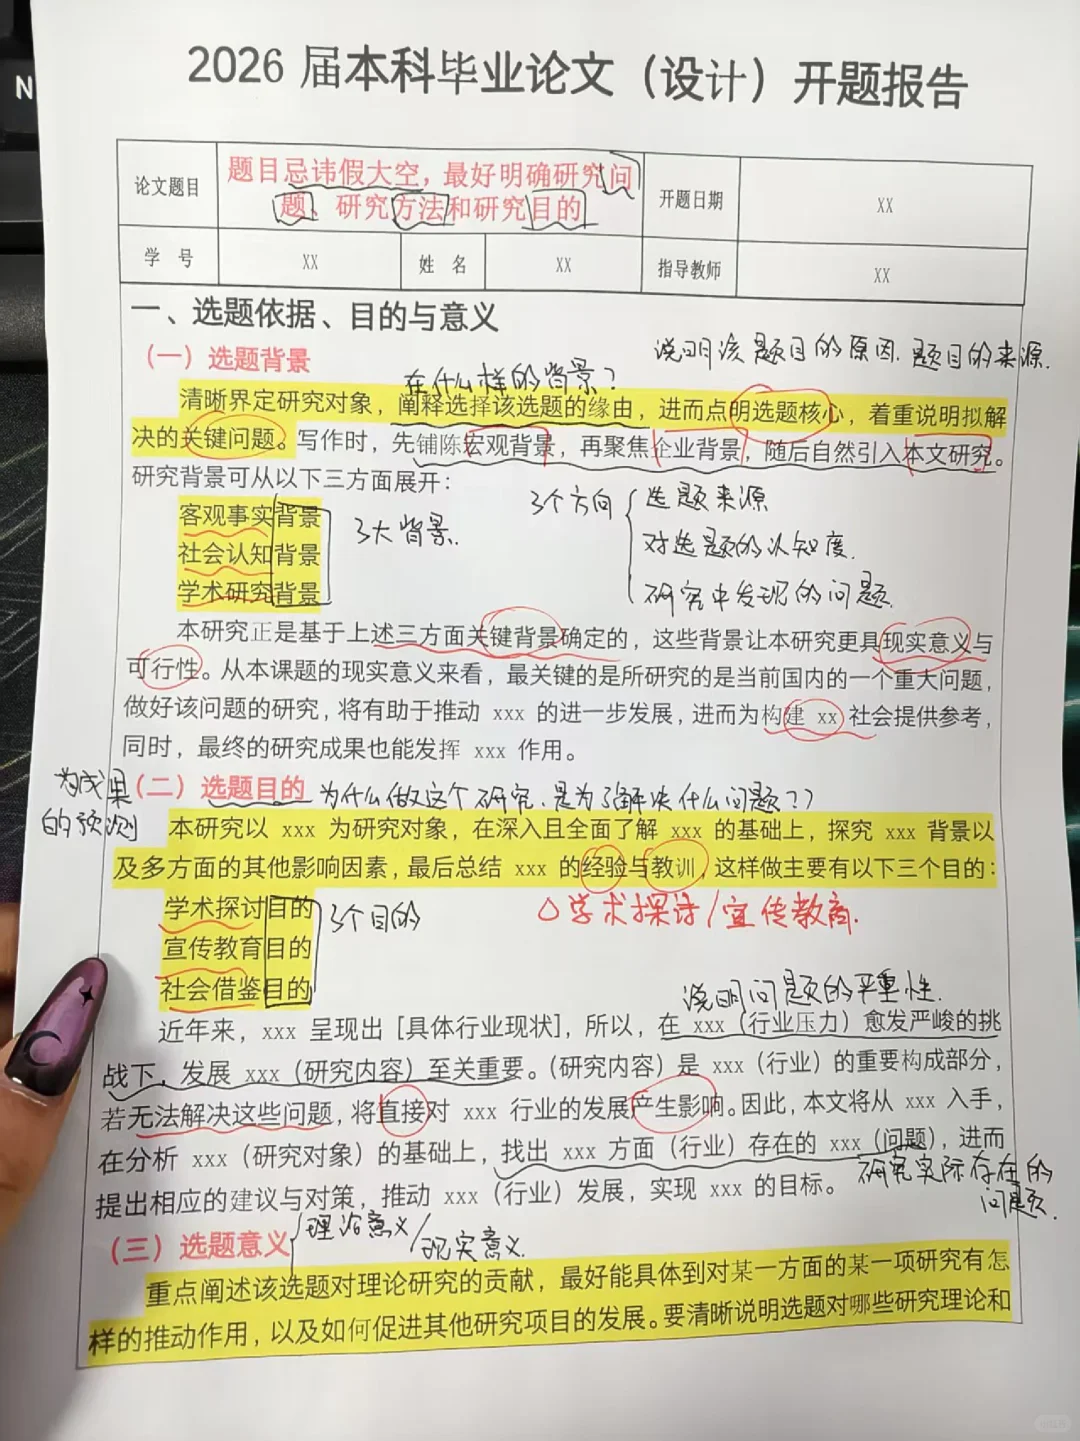 N
2026 届本科毕业论文（设计）开题报告
论文题目
题目忌讳假大空，最好明确研究问
题、研究方法和研究目的
开题日期
XX
学 号
XX
姓 名
XX
指导教师
XX
一、选题依据、目的与意义
（一）选题背景
说明该题目的原因.题目的来源.
在什么样的背景？
清晰界定研究对象，阐释选择该选题的缘由，进而点明选题核心，着重说明拟解
决的关键问题。写作时，先铺陈宏观背景，再聚焦企业背景，随后自然引入本文研究。
研究背景可从以下三方面展开：
客观事实背景
社会认知背景
学术研究背景
3大背景.
3个方向
选题来源
对选题的认知度.
研究中发现的问题.
本研究正是基于上述三方面关键背景确定的，这些背景让本研究更具现实意义与
可行性。从本课题的现实意义来看，最关键的是所研究的是当前国内的一个重大问题，
做好该问题的研究，将有助于推动 xxx 的进一步发展，进而为构建 xx 社会提供参考，
同时，最终的研究成果也能发挥 xxx 作用。
为成果
的预测
（二）选题目的
为什么做这个研究.是为了解决什么问题？？
本研究以 xxx 为研究对象，在深入且全面了解 xxx 的基础上，探究 xxx 背景以
及多方面的其他影响因素，最后总结 xxx 的经验与教训，这样做主要有以下三个目的：
学术探讨目的
宣传教育目的
社会借鉴目的
3个目的
△学术探讨/宣传教育.
说明问题的严重性.
近年来，xxx 呈现出 [具体行业现状]，所以，在 xxx（行业压力）愈发严峻的挑
战下，发展 xxx（研究内容）至关重要。（研究内容）是 xxx（行业）的重要构成部分，
若无法解决这些问题，将直接对 xxx 行业的发展产生影响。因此，本文将从 xxx 入手，
在分析 xxx（研究对象）的基础上，找出 xxx 方面（行业）存在的 xxx（问题），进而
提出相应的建议与对策，推动 xxx（行业）发展，实现 xxx 的目标。
研究实际存在的
问题.
（三）选题意义
理论意义/现实意义.
重点阐述该选题对理论研究的贡献，最好能具体到对某一方面的某一项研究有怎
样的推动作用，以及如何促进其他研究项目的发展。要清晰说明选题对哪些研究理论和